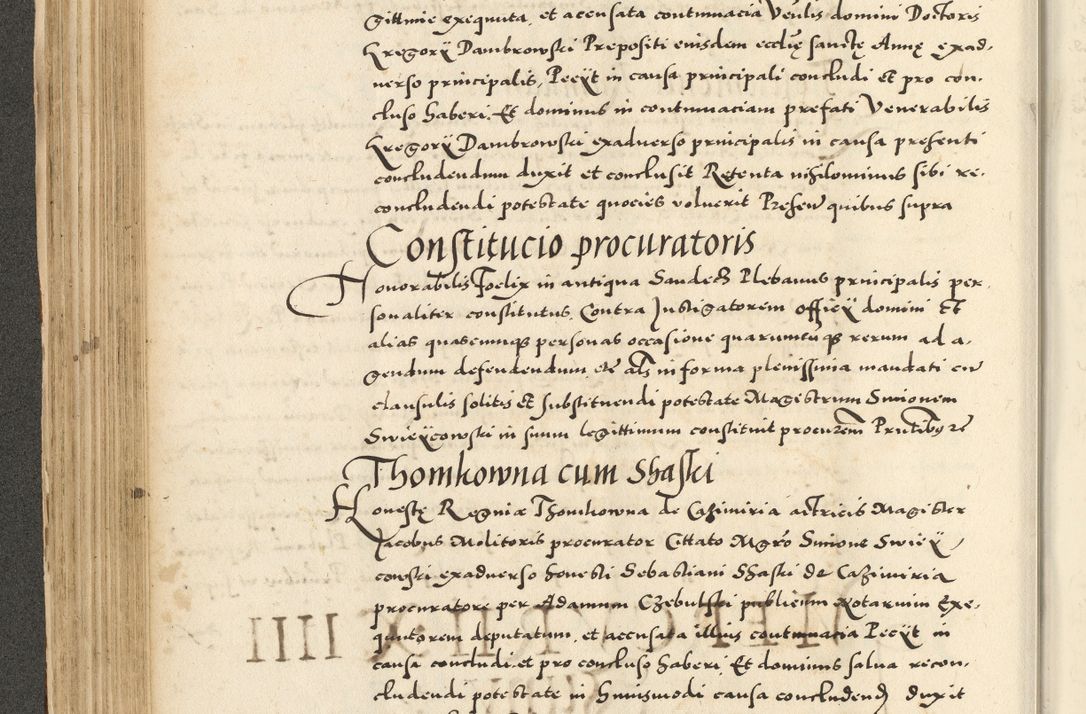 gittime exequuta, et accusata contumacia Venlis domini Doctoris
Gregorÿ Dambrowski Prepositi eiusdem ecclię sanctę Annę exad-
uerso principalis, Peeÿt in causa principali concludi et pro con-
cluso haberi. Et dominus in contumaciam prefati Venerabilis
Gregorÿ Dambrowski exaduerso principalis in causa presenti
concludendum duxit et conclusit Retenta nihilominus sibi re-
concludendi potestate quocies voluerit Presen quibus supra
Constitucio procuratoris
Honorabilis Foelix in antiqua Sandecz Plebanus principalis per-
sonaliter constitutus, Contra Instigatorem officÿ domini et
alias quascumque personas occasione quarumcumque rerum ad a-
gendum defendendum etc als in forma plenissima mandati cu
clausulis solitis et substituendi potestate Magistrum Simonem
Swieÿcowski in suum legittimum constituit procurem Pntibus etc
Thomkowna cum Shaski
Honestę Reginæ Thomkowna de Cazimiria actricis Magister
Jacobus Molitoris procurator Cittato Mgro Simone Swieÿ
cowski exaduerso honesti Sebastiani Shaski de Cazimiria
procuratore per Adamum Czebulski publicum Notarium Exe-
quutorem deputatum, et accusata illius contumacia Peeÿt in
causa concludi et pro concluso haberi, Et dominus salua recon-
cludendi potestate in huiusmodi causa concludend duxit